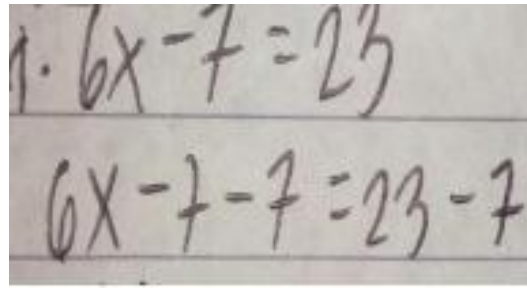 1. 6x - 7 = 23
6x - 7 - 7 = 23 - 7